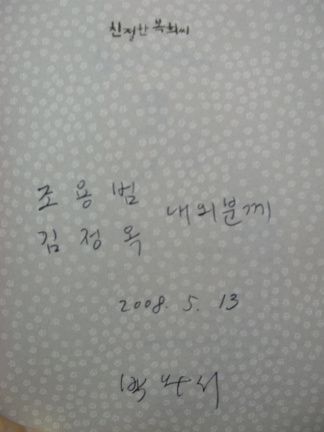 친절한 복희씨
조 용 범
김 정 옥 내외분께
2008. 5. 13
박완서